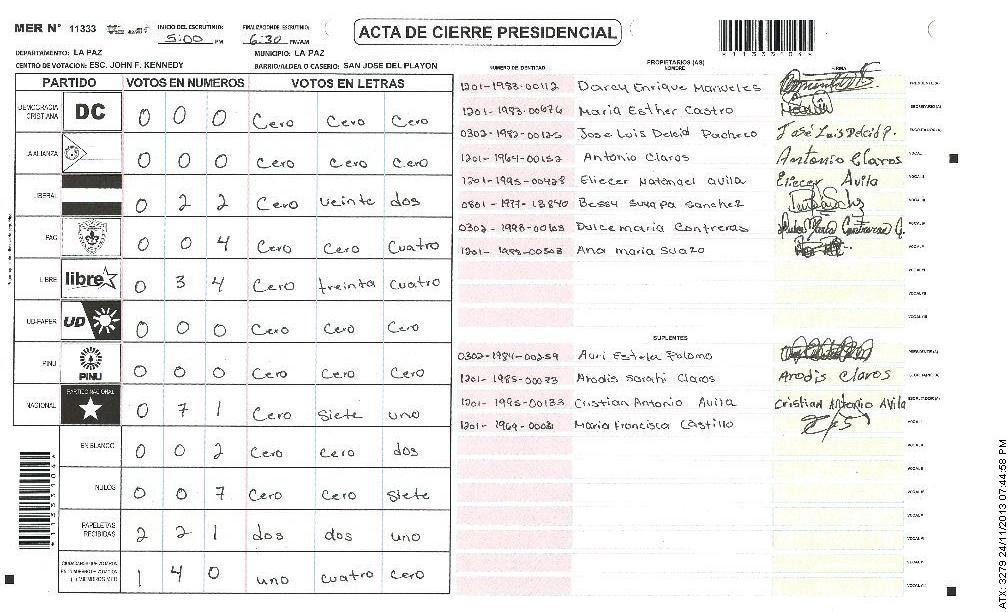 MER N° 11333 INICIO DEL ESCRUTINIO: 5:00 PM FINALIZACION DE ESCRUTINIO: 6:30 PM/AM
ACTA DE CIERRE PRESIDENCIAL
DEPARTAMENTO: LA PAZ MUNICIPIO: LA PAZ
CENTRO DE VOTACION: ESC. JOHN F. KENNEDY BARRIO/ALDEA O CASERIO: SAN JOSE DEL PLAYON
PARTIDO VOTOS EN NUMEROS VOTOS EN LETRAS
DEMOCRACIA CRISTIANA DC 0 0 0 Cero Cero Cero
LA ALIANZA 0 0 0 Cero Cero Cero
LIBERAL 0 2 2 Cero veinte dos
FAC 0 0 4 Cero Cero Cuatro
LIBRE libre 0 3 4 Cero treinta cuatro
UD-FAPER UD 0 0 0 Cero Cero Cero
PINU PINU 0 0 0 Cero Cero Cero
NACIONAL PARTIDO NACIONAL 0 7 1 Cero Siete uno
EN BLANCO 0 0 2 Cero Cero dos
NULOS 0 0 7 Cero Cero Siete
PAPELETAS RECIBIDAS 2 2 1 dos dos uno
1 4 0 uno cuatro cero
PROPIETARIOS (AS)
NUMERO DE IDENTIDAD NOMBRE FIRMA
1201-1983-00112 Darcy Enrique Manueles
1201-1983-00676 Maria Esther Castro
0302-1982-00125 Jose Luis Delcid Pacheco José Luis Delcid P.
1201-1964-00152 Antonio Claros Antonio Claros
1201-1995-00428 Eliecer Natanael avila Eliecer Avila
0801-1977-13840 Bessy suyapa sanchez
0302-1998-00168 Dulce maria Contreras Dulce Maria Contreras G.
Ana maria Suazo
SUPLENTES
0302-1984-00259 Auri Estela Palomo
1201-1985-00073 Arodis Sarahi Claros Arodis Claros
1201-1995-00133 Cristian Antonio Avila Cristian Antonio Avila
1201-1969-00081 Maria Francisca Castillo
ATX: 3279 24/11/2013 07:44:58 PM